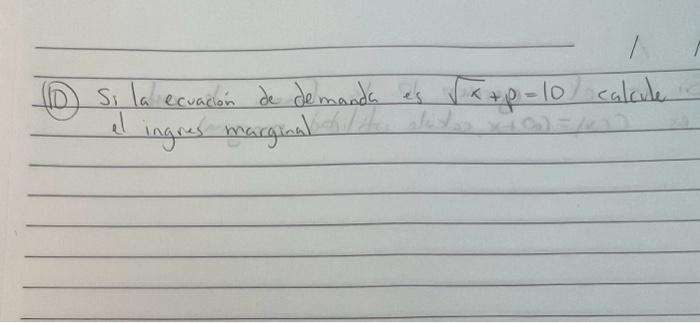 10) Si la ecuación de demanda es √x + p = 10 calcule
el ingres marginal